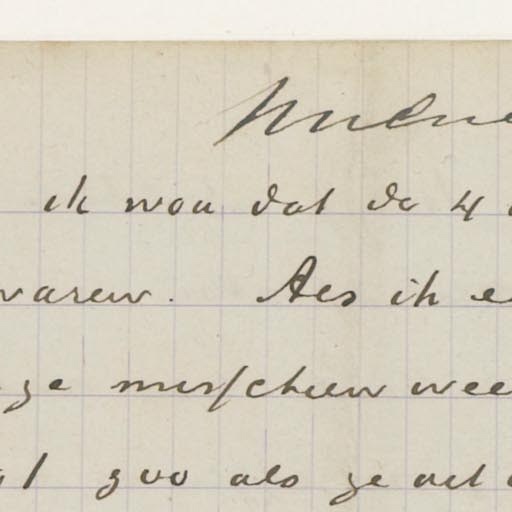 ik wou dat de 4
waren. Als ik
ge misschien wee
zoo als ge met